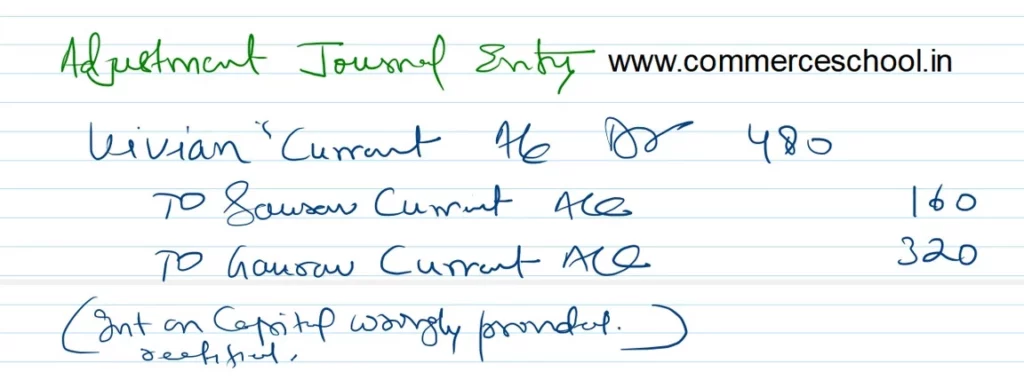 Adjustment Journal Entry www.commerceschool.in
Vivian's Current A/c Dr 480
To Sourav Current A/c 160
To Gaurav Current A/c 320
(Int on Capital wrongly provided.
rectified.)